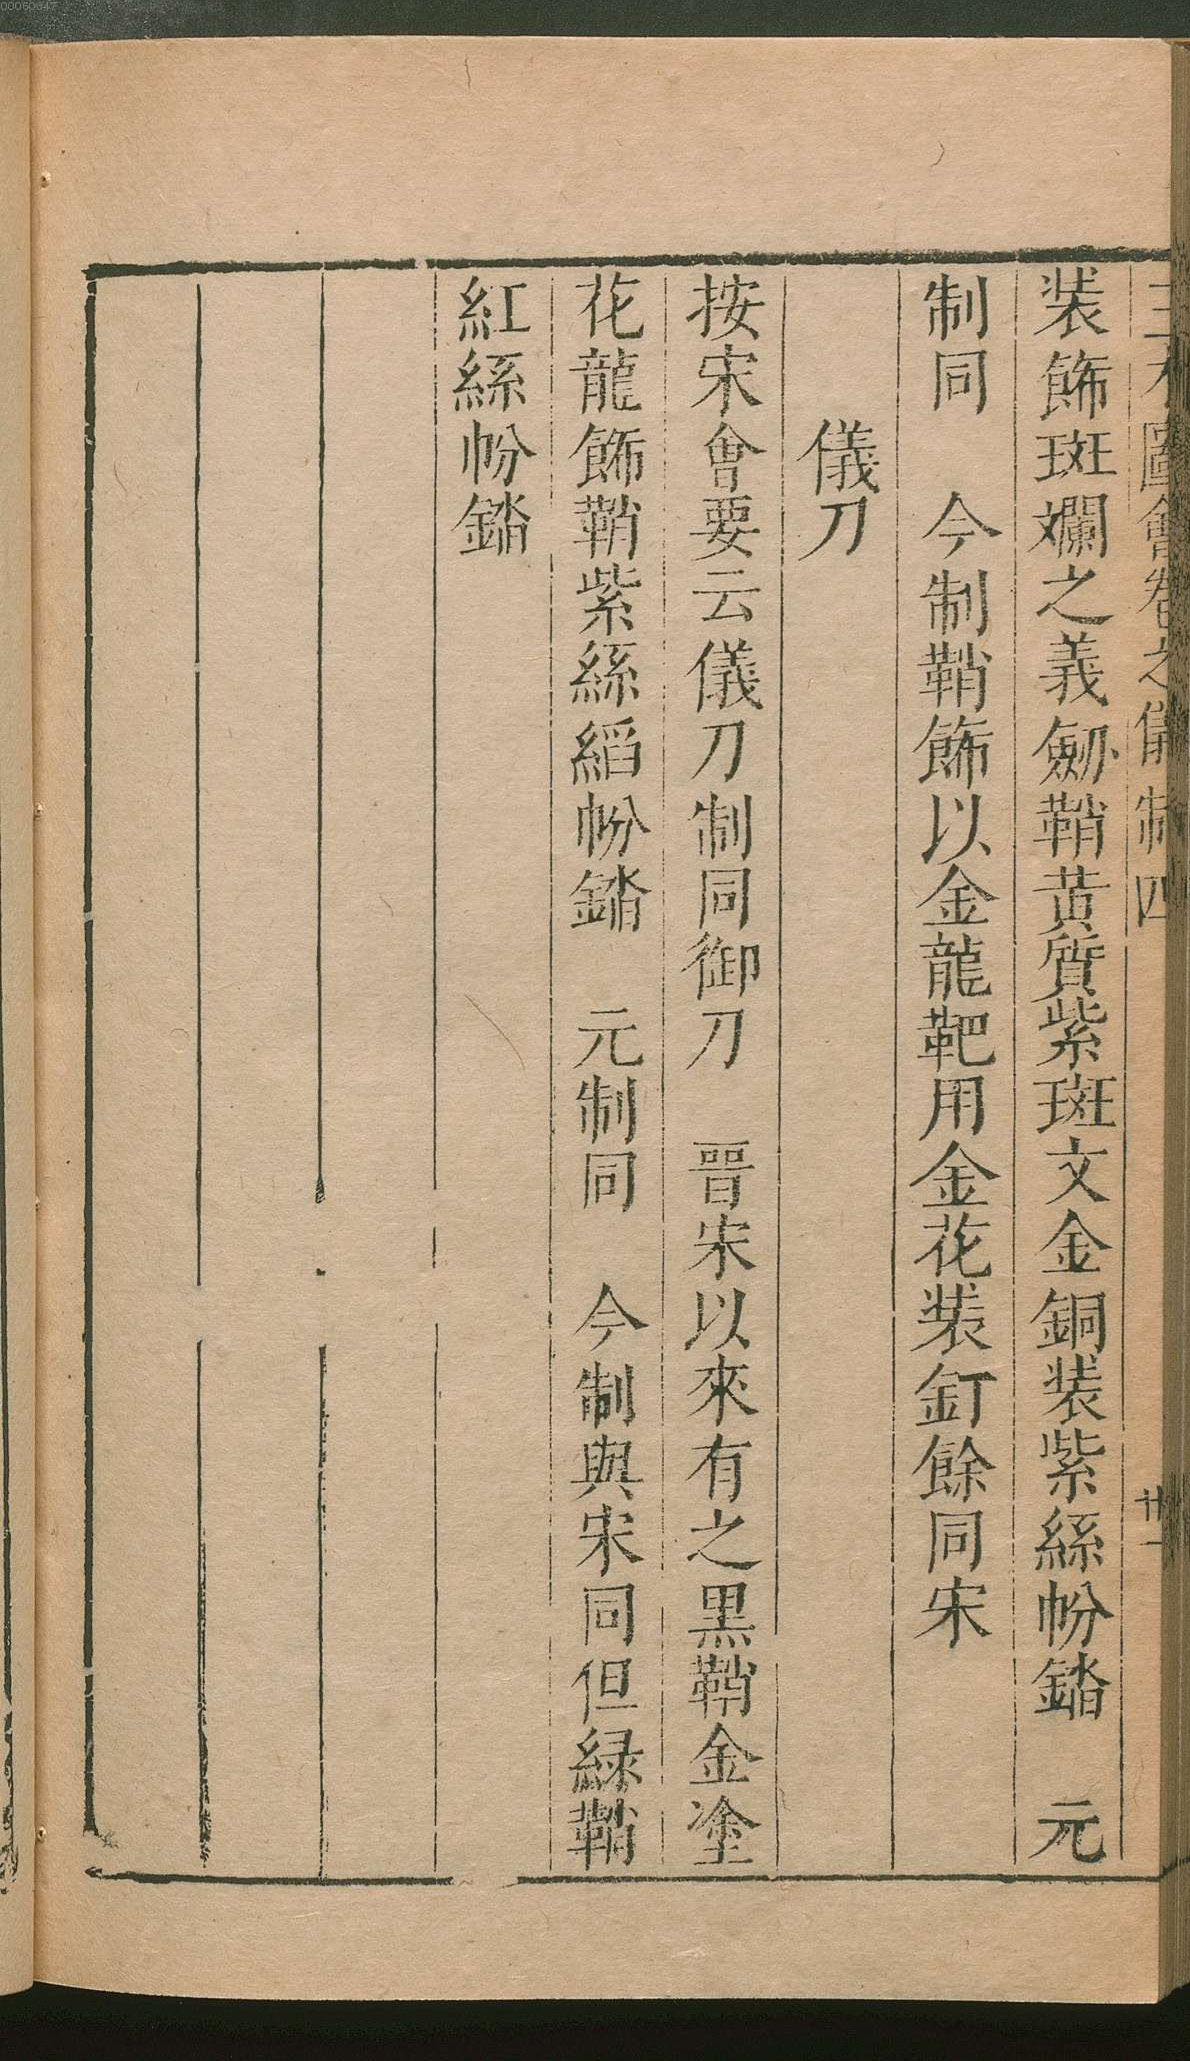 三才圖會卷之儀制四 廿一
装飾斑斕之義劒鞘黄質紫斑文金銅装紫絲帉錔 元
制同 今制鞘飾以金龍靶用金花装釘餘同宋
儀刀
按宋會要云儀刀制同御刀 晉宋以來有之黒鞘金塗
花龍飾鞘紫絲縚帉錔 元制同 今制與宋同但緑鞘
紅絲帉錔
00060047